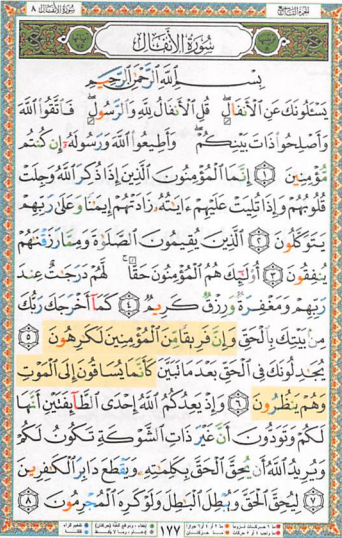 سورة الأنفال ٨
الجزء التاسع
سُورَةُ الأَنفَالِ
بِسْمِ ٱللَّهِ ٱلرَّحْمَٰنِ ٱلرَّحِيمِ
يَسْـَٔلُونَكَ عَنِ ٱلْأَنفَالِ ۖ قُلِ ٱلْأَنفَالُ لِلَّهِ وَٱلرَّسُولِ ۖ فَٱتَّقُوا۟ ٱللَّهَ
وَأَصْلِحُوا۟ ذَاتَ بَيْنِكُمْ ۖ وَأَطِيعُوا۟ ٱللَّهَ وَرَسُولَهُۥٓ إِن كُنتُم
مُّؤْمِنِينَ ١ إِنَّمَا ٱلْمُؤْمِنُونَ ٱلَّذِينَ إِذَا ذُكِرَ ٱللَّهُ وَجِلَتْ
قُلُوبُهُمْ وَإِذَا تُلِيَتْ عَلَيْهِمْ ءَايَٰتُهُۥ زَادَتْهُمْ إِيمَٰنًا وَعَلَىٰ رَبِّهِمْ
يَتَوَكَّلُونَ ٢ ٱلَّذِينَ يُقِيمُونَ ٱلصَّلَوٰةَ وَمِمَّا رَزَقْنَٰهُمْ
يُنفِقُونَ ٣ أُو۟لَٰٓئِكَ هُمُ ٱلْمُؤْمِنُونَ حَقًّا ۚ لَّهُمْ دَرَجَٰتٌ عِندَ
رَبِّهِمْ وَمَغْفِرَةٌ وَرِزْقٌ كَرِيمٌ ٤ كَمَآ أَخْرَجَكَ رَبُّكَ
مِنۢ بَيْتِكَ بِٱلْحَقِّ وَإِنَّ فَرِيقًا مِّنَ ٱلْمُؤْمِنِينَ لَكَٰرِهُونَ ٥
يُجَٰدِلُونَكَ فِى ٱلْحَقِّ بَعْدَ مَا تَبَيَّنَ كَأَنَّمَا يُسَاقُونَ إِلَى ٱلْمَوْتِ
وَهُمْ يَنظُرُونَ ٦ وَإِذْ يَعِدُكُمُ ٱللَّهُ إِحْدَى ٱلطَّآئِفَتَيْنِ أَنَّهَا
لَكُمْ وَتَوَدُّونَ أَنَّ غَيْرَ ذَاتِ ٱلشَّوْكَةِ تَكُونُ لَكُمْ
وَيُرِيدُ ٱللَّهُ أَن يُحِقَّ ٱلْحَقَّ بِكَلِمَٰتِهِۦ وَيَقْطَعَ دَابِرَ ٱلْكَٰفِرِينَ
٧ لِيُحِقَّ ٱلْحَقَّ وَيُبْطِلَ ٱلْبَٰطِلَ وَلَوْ كَرِهَ ٱلْمُجْرِمُونَ ٨
١٧٧